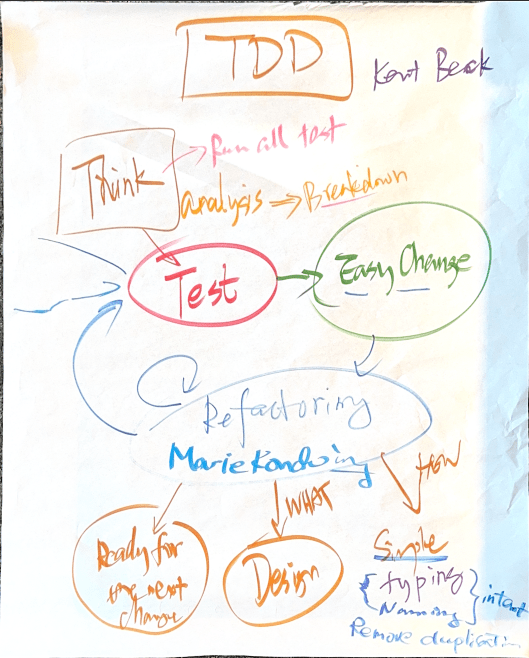 TDD
Kent Beck
Run all test
Think
analysis => Breakdown
Test
Easy Change
Refactoring
MarieKondoing
HOW
WHAT
Ready for
the next
change
Design
Simple
typing
Naming
intent
Remove duplication